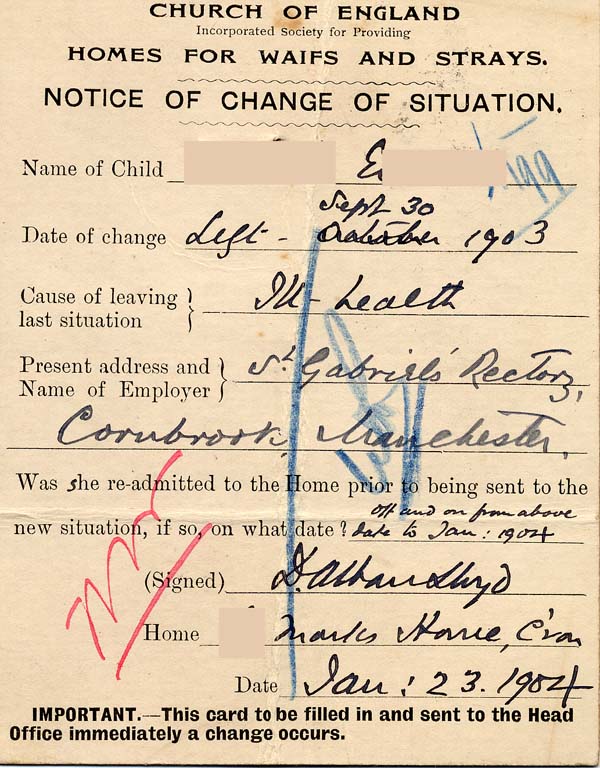 CHURCH OF ENGLAND
Incorporated Society for Providing
HOMES FOR WAIFS AND STRAYS.
NOTICE OF CHANGE OF SITUATION.
Name of Child E
Sept 30
Date of change Left - October 1903
Cause of leaving last situation } Ill-health
Present address and Name of Employer } St. Gabriel's Rectory,
Cornbrook, Manchester.
Was she re-admitted to the Home prior to being sent to the
off and on from above
new situation, if so, on what date? date to Jan: 1904
(Signed) D. Alban Lloyd
Home Marks Home, C'ron
Date Jan: 23. 1904
IMPORTANT.—This card to be filled in and sent to the Head
Office immediately a change occurs.